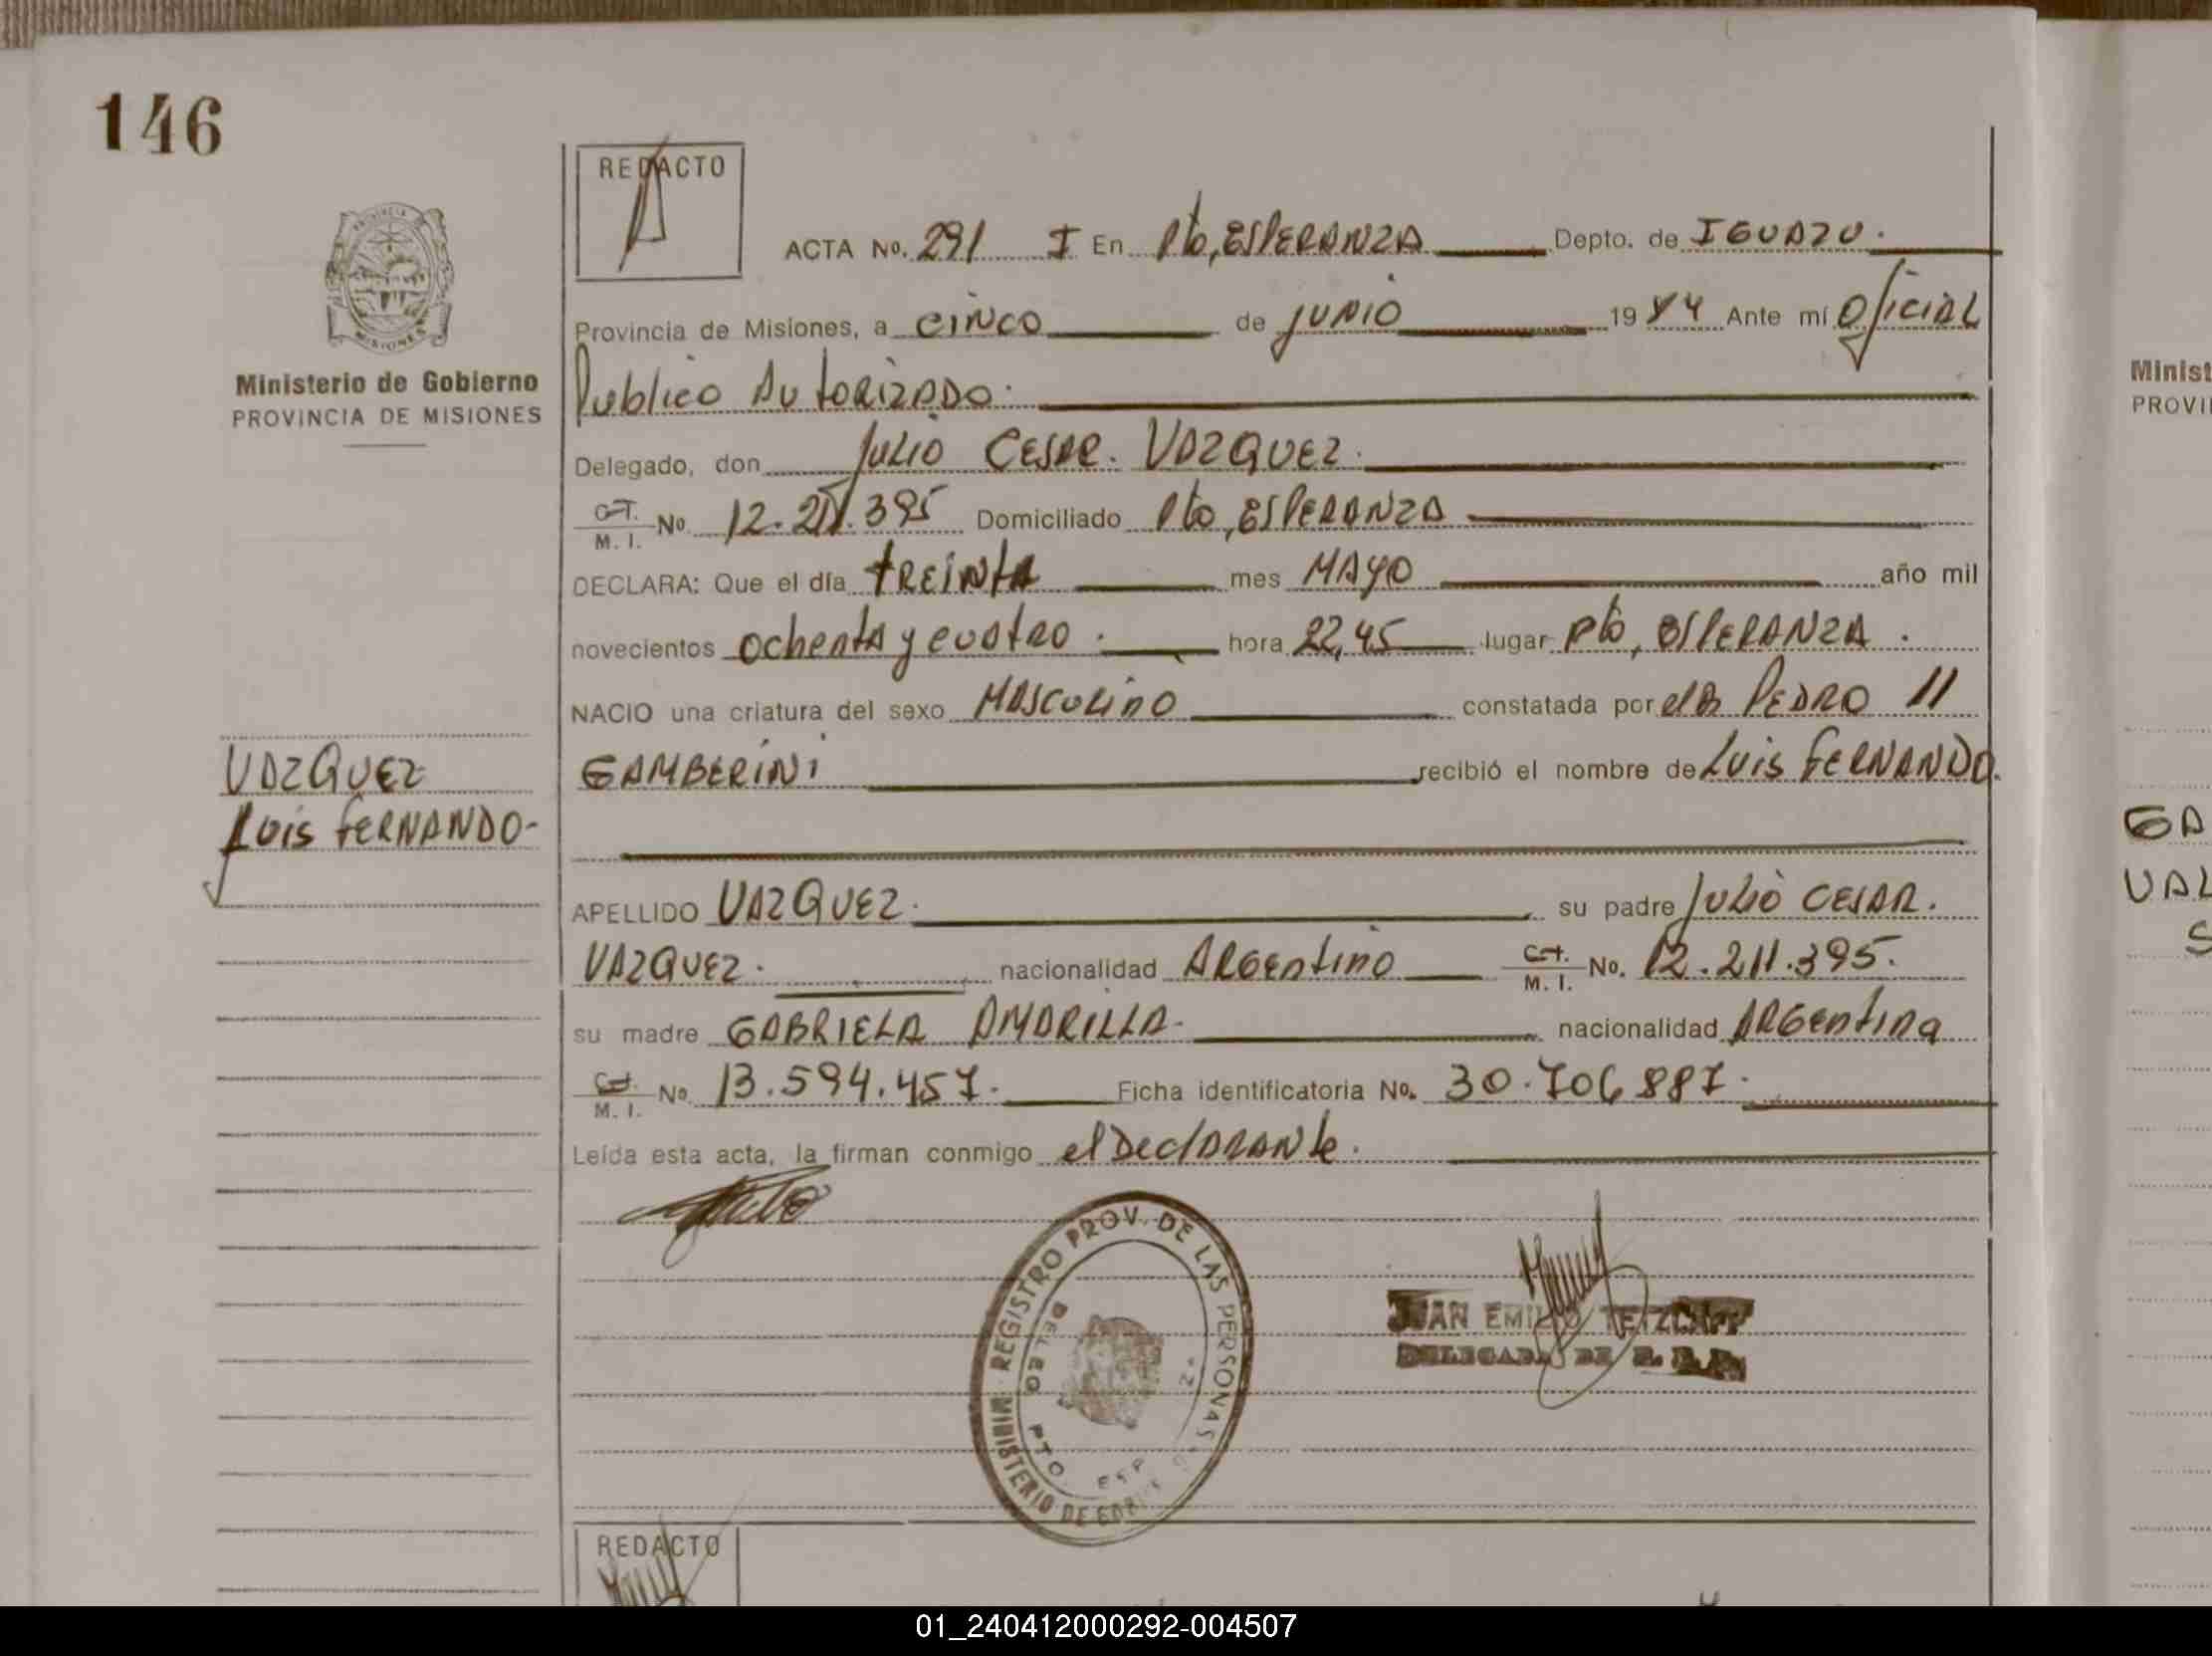 146
REDACTO
ACTA No. 291 I En Pto, ESPERANZA Depto. de IGUAZU.
PROVINCIA
MISIONES
Provincia de Misiones, a CINCO de JUNIO 1984 Ante mí Oficial
Ministerio de Gobierno
PROVINCIA DE MISIONES
Publico Autorizado.
Delegado, don Julio CESAR. VAZQUEZ.
C.I. M. I. No. 12.211.395 Domiciliado Pto, ESPERANZA
DECLARA: Que el día TREINTA mes MAYO año mil
novecientos ochenta y cuatro. hora 22,45 lugar Pto, ESPERANZA.
NACIO una criatura del sexo MASCULINO constatada por el Dr PEDRO
GAMBERINI recibió el nombre de Luis FERNANDO.
VAZQUEZ
Luis FERNANDO-
APELLIDO VAZQUEZ. su padre Julio CESAR.
VAZQUEZ. nacionalidad ARGENTINO C.I. M. I. No. 12.211.395.
su madre GABRIELA AMARILLA. nacionalidad ARGENTINA
C.I. M. I. No. 13.594.457. Ficha identificatoria No. 30.706887.
Leída esta acta, la firman conmigo el Declarante.
REGISTRO PROV. DE LAS PERSONAS
MINISTERIO DE
PTO ESP
JUAN EMILIO
DELEGADO DE
REDACTO
Minist
PROVI
GA
VAL
S
01_240412000292-004507